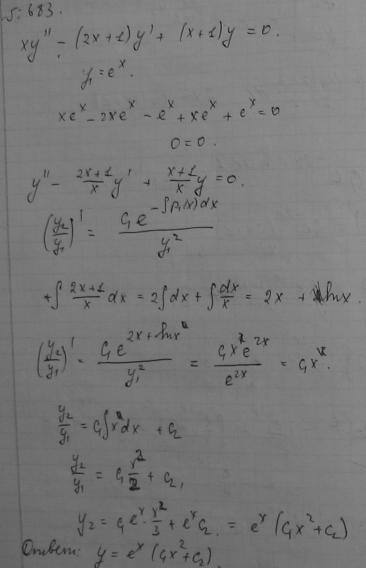 5. 683.
xy'' - (2x+1)y' + (x+1)y = 0.
y₁ = eˣ.
xeˣ - 2xeˣ - eˣ + xeˣ + eˣ = 0
0 = 0.
y'' - (2x+1)/x y' + (x+1)/x y = 0.
(y₂/y₁)' = C₁e^(-∫p₁(x)dx) / y₁²
+∫ (2x+1)/x dx = 2∫dx + ∫dx/x = 2x + lnx.
(y₂/y₁)' = C₁e^(2x+lnx) / y₁² = C₁xe^(2x) / e^(2x) = C₁x.
y₂/y₁ = C₁∫xdx + C₂
y₂/y₁ = C₁ x²/2 + C₂,
y₂ = C₁eˣ · x²/3 + eˣC₂ = eˣ (C₁x² + C₂)
Ответ: y = eˣ (C₁x² + C₂).